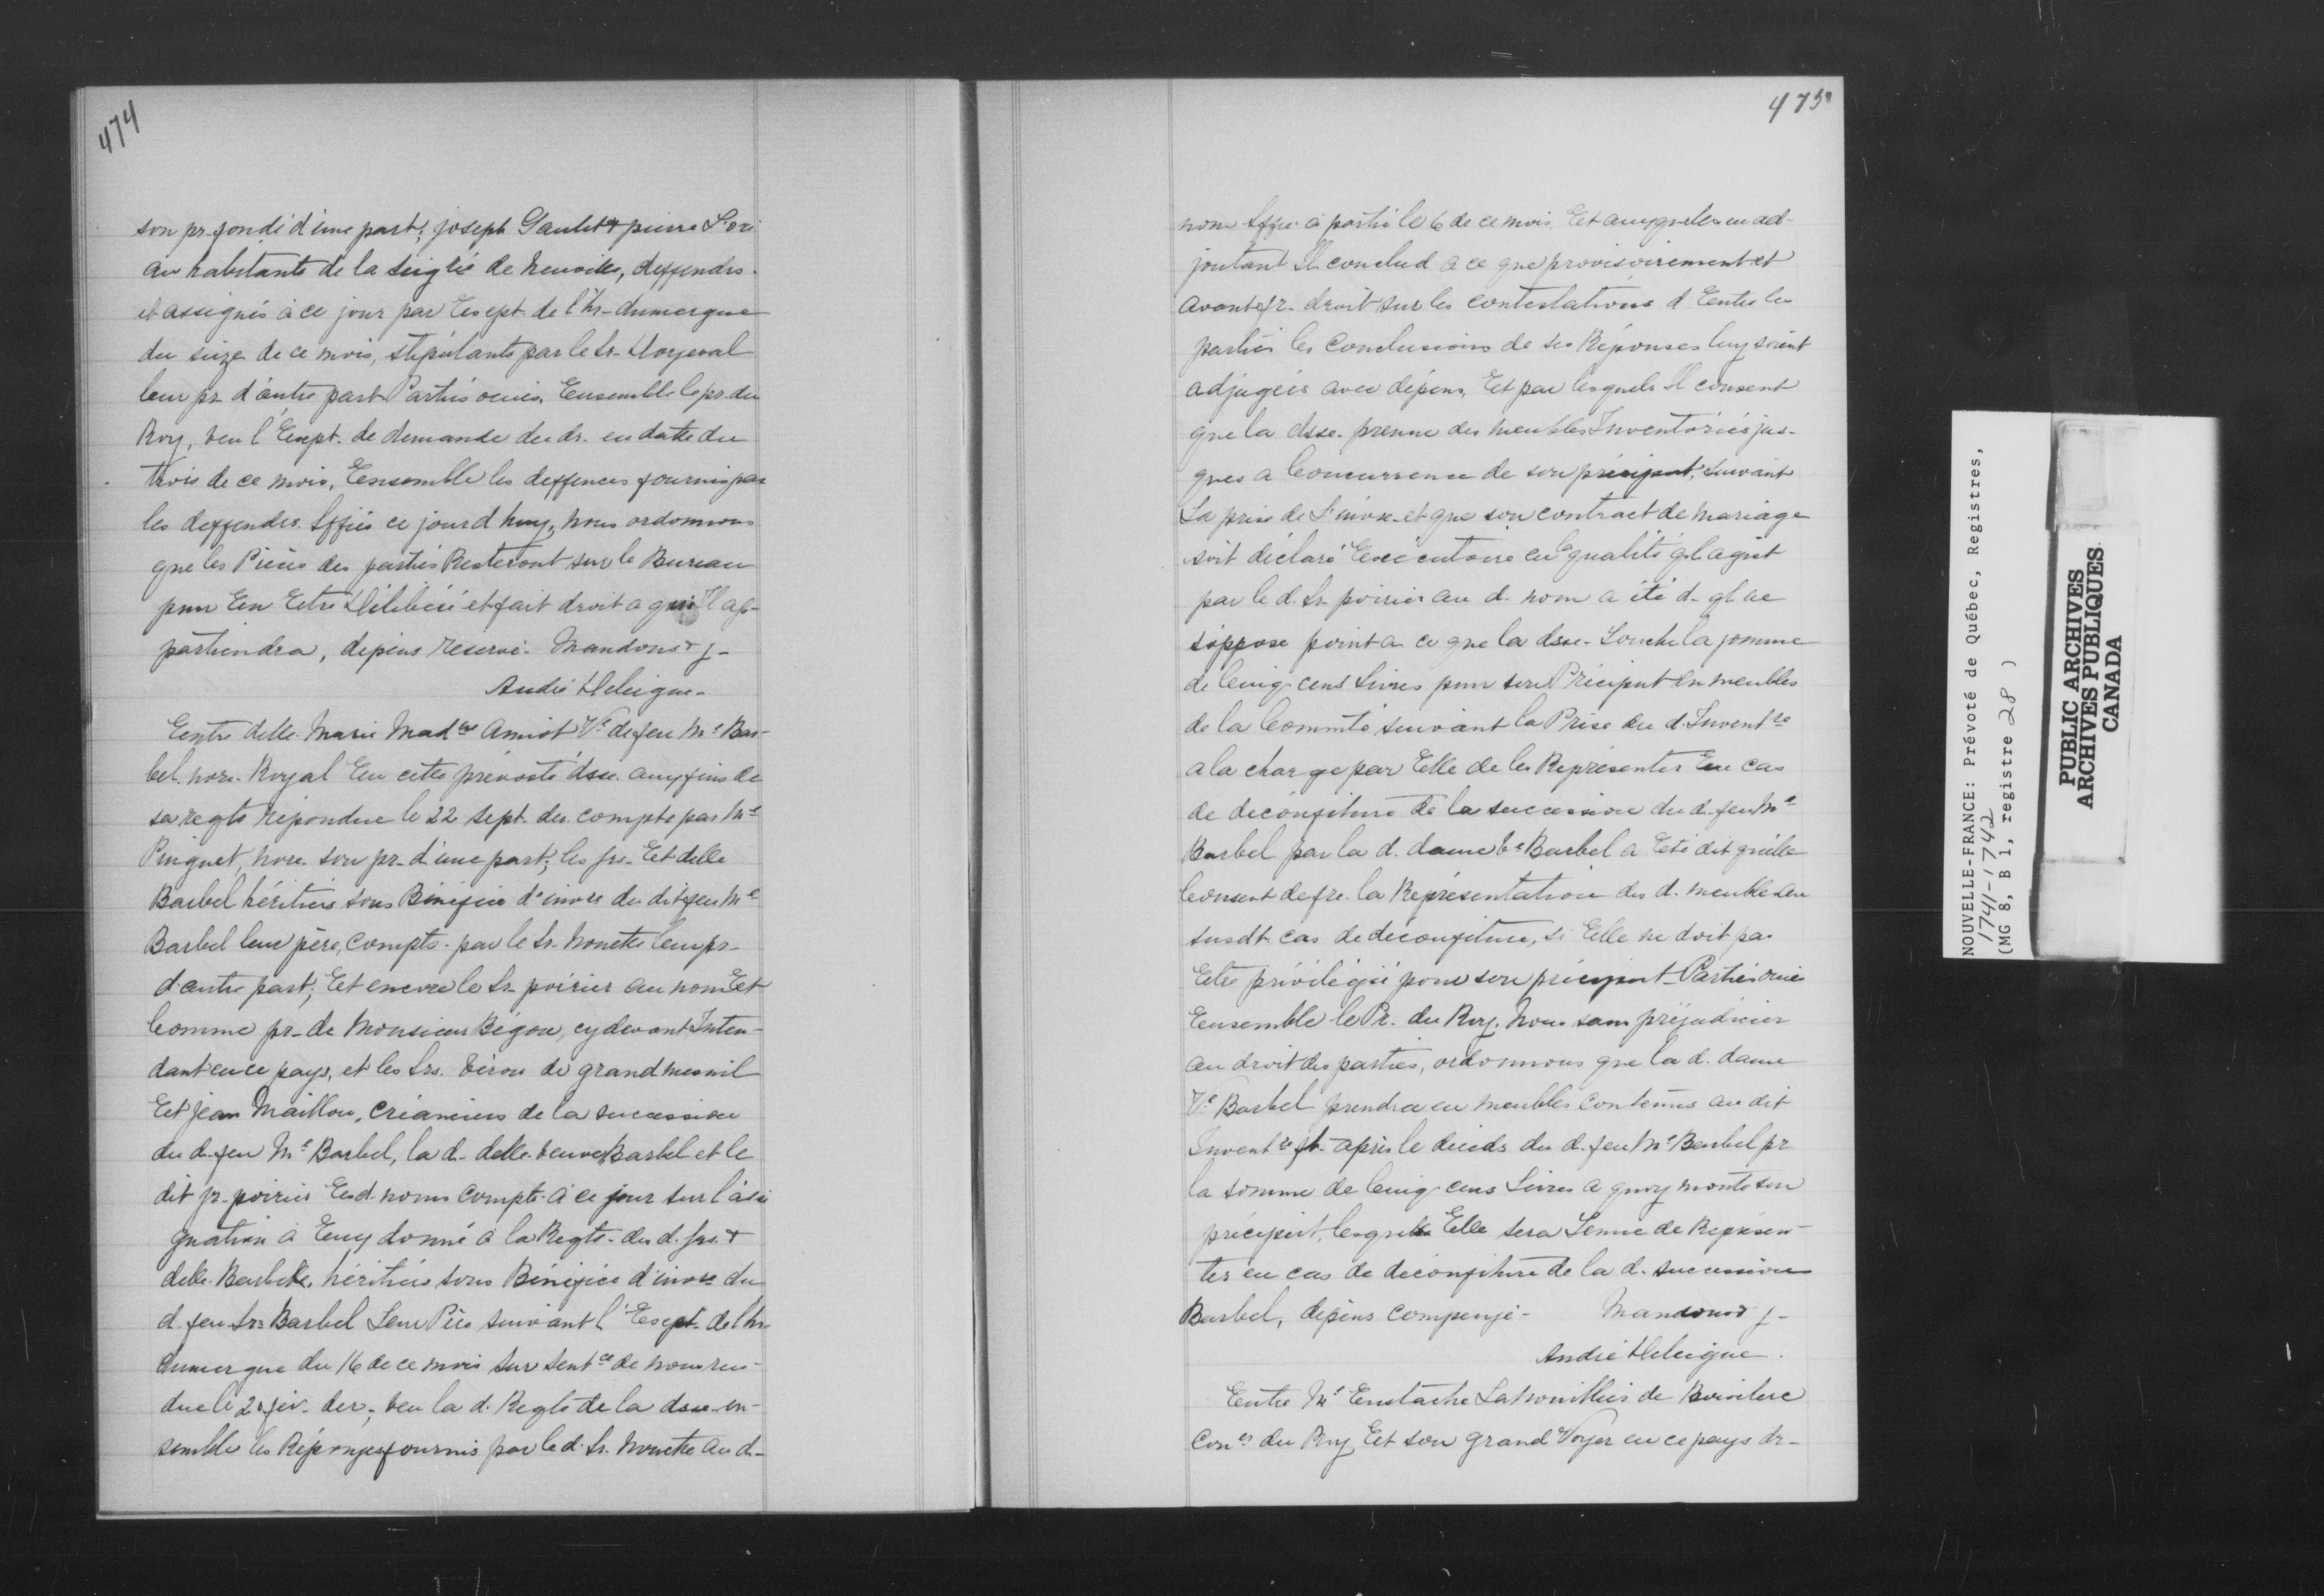 474
son pr. fondé d'une part; joseph Gaulet & pierre
au habitants de la Seigrie de Neuville, deffendrs.
et assignés à ce jour par Exept. de l'hr. dumergue
du seize de ce mois, stipulants par le Sr. Morjeval
leur pr. d'autre part Partiés ouiés, Ensemble le pr. du
Roy, veu l'Exept. de demande du dr. en date du
trois de ce mois, Ensemble les deffences fournis par
les deffendrs. Sffiés ce jourd'huy, nous ordonnons
que les Piéces des partiés Resteront sur le Bureau
pour En Etre Déliberé et fait droit a qui Il ap-
partiendra, depens reservé. Mandons & j-
André Deleigne.
Entre delle. Marie Madne Amiot Ve de feu Me Bar-
bel nore. Royal En cette prevosté dsse. auxfins de
sa reqte répondue le 22 Sept. der. compte par Me
Pinguet, nore. son pr. d'une part; les frs. Et delle
Barbel héritiérs sous Bénéfice d'invre du dit feu Me
Barbel leur père, compts. par le Sr. Nouette leur pr.
d'autre part; Et encore le Sr. poirier au nom Et
Comme pr. de Monsieur Bégon, cy devant Inten-
dant en ce pays, et les Srs. Véron de grandmesnil
Et jean Maillou, créanciers de la succession
du d. feu Me Barbel, la d. delle. veuve Barbel et le
dit Sr. poirier Esd. noms compts. à ce jour sur l'assi
gnation à Eux donné à la Reqte. des d. frs. &
delle. Barbelle, héritiérs sous Bénéfice d'invre du
d. feu Sr. Barbel Leur Pére suivant l'Exept. de l'hr.
dumergue du 16 de ce mois sur Sentce de nous ren-
due le 20 fév. der; veu la d. Reqte de la dsse. en-
semble les Réponses fournis par le d. Sr. Nouette au d-
475
nom Sffié à partié le 6 de ce mois, Et auxquelles en ad-
joutant Il conclud a ce que provisoirement et
avant fr. droit sur les contestations d'Entre les
partiés les Conclusions de ses Réponses luy soient
adjugéés avec dépens, Et par lesquels Il consent
que la dsse. prenne des meubles Inventoriés jus-
ques a Concurrence de son préciput, Suivant
La prisé de L'invre. et que son contract de mariage
soit déclaré Exécutoire en la qualité ql agist
par le d. Sr. poirier au d. nom a été d. ql ne
s'oppose point a ce que la dsse. Touche la somme
de Cinq cens Livres pour son Préciput En meubles
de la Commté suivant la Prisé du d. Inventre
a la charge par Elle de les Représenter En cas
de deconfiture de la succession du d. feu Me
Barbel par la d. dame Ve Barbel a Eté dit qu'elle
Consent de fre. la Représentation des d. meubles au
susdt. cas de déconfiture, si Elle ne doit pas
Etre privilégié pour son préciput Partiés ouiés
Ensemble le Pr. du Roy. Nous sans préjudicier
au droit des partiés, ordonnons que la d. dame
Ve Barbel prendra en meubles contenus au dit
Inventre ft. après le décéds du d. feu Me Barbel pr.
la somme de Cinq cens Livres a quoy monte son
préciput, lesquels Elle sera Tenue de Représen-
ter en cas de déconfiture de la d. succession
Barbel, dépens compensé- Mandons & j-
André Deleigne.
Entre Me Eustache Lanouilliér de Boisclerc
Coner du Roy Et son grand Voyer en ce pays dr-
NOUVELLE-FRANCE: Prévoté de Québec, Registres,
1741-1742
(MG 8, B 1, registre 28 )
PUBLIC ARCHIVES
ARCHIVES PUBLIQUES
CANADA